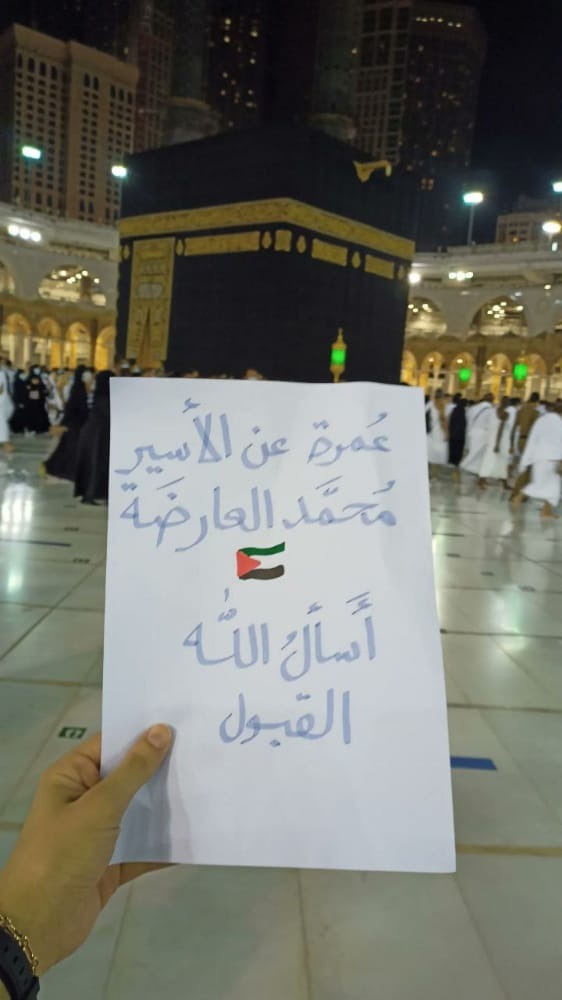 عُمرة عن الأسير
مُحمَّد العارضَة
أَسأَلُ اللّٰه
القبول